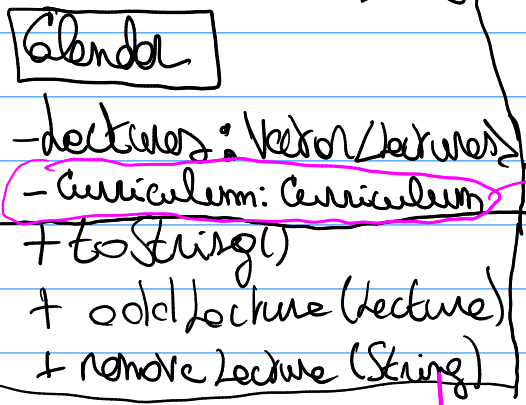 Calendar
- Lectures: Vector<Lectures>
- Curriculum: Curriculum
+ toString()
+ addLecture(Lecture)
+ removeLecture(String)